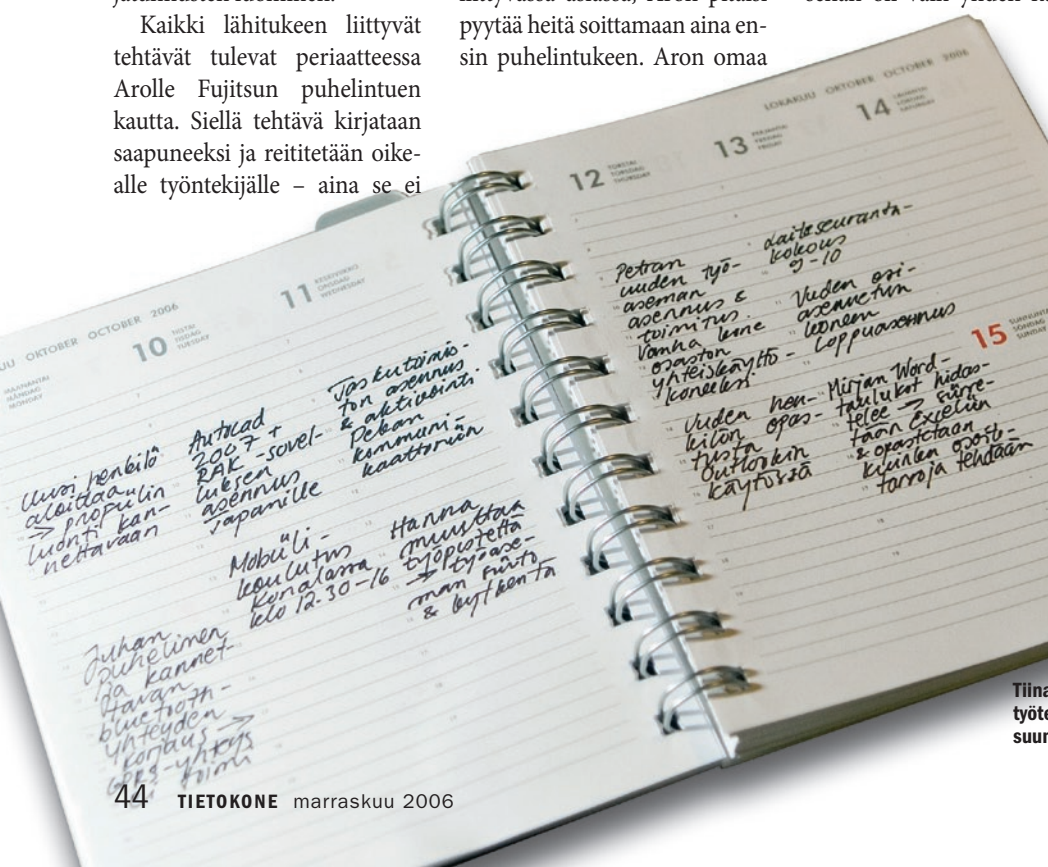 Kaikki lähitukeen liittyvät
tehtävät tulevat periaatteessa
Arolle Fujitsun puhelintuen
kautta. Siellä tehtävä kirjataan
saapuneeksi ja reititetään oike-
alle työntekijälle – aina se ei
pyytää heitä soittamaan aina en-
sin puhelintukeen. Aron omaa
OKTOBER OCTOBER 2006
MAANANTAI
MÅNDAG
MONDAY
10 TIISTAI
TISDAG
TUESDAY
11 KESKIVIIKKO
ONSDAG
WEDNESDAY
Uusi henkilö
aloittaa
→ profiilin
luonti kan-
nettavaan
Autocad
2007 +
RAK-sovel-
luksen
asennus
Japanille
Taskutoimis-
ton asennus
& aktivointi
Pekan
kommuni-
kaattoriin
Juhan
puhelimen
ja kannet-
tavan
bluetooth-
yhteyden
korjaus →
GPRS-yhteys
toimii
Mobiili-
koulutus
Konalassa
klo 12.30-16
Hanna
muuttaa
työpistettä
→ työase-
man siirto
& kytkentä
LOKAKUU OKTOBER OCTOBER 2006
12 TORSTAI
TORSDAG
THURSDAY
13 PERJANTAI
FREDAG
FRIDAY
14 LAUANTAI
LÖRDAG
SATURDAY
15 SUNNUNTAI
SÖNDAG
SUNDAY
Petran
uuden työ-
aseman
asennus &
toimitus.
Vanha kone
osaston
yhteiskäyttö-
koneeksi.
Laiteseuranta-
kokous
9-10
Vuden esi-
asennetun
koneen
loppuasennus
Uuden hen-
kilön opas-
tusta
Outlookin
käytössä
Mirjan Word-
taulukot hidas-
telee → siirre-
tään Exceliin
& opastetaan
kuinka osoite-
tarroja tehdään
Tiina
työte
suun
44 TIETOKONE marraskuu 2006